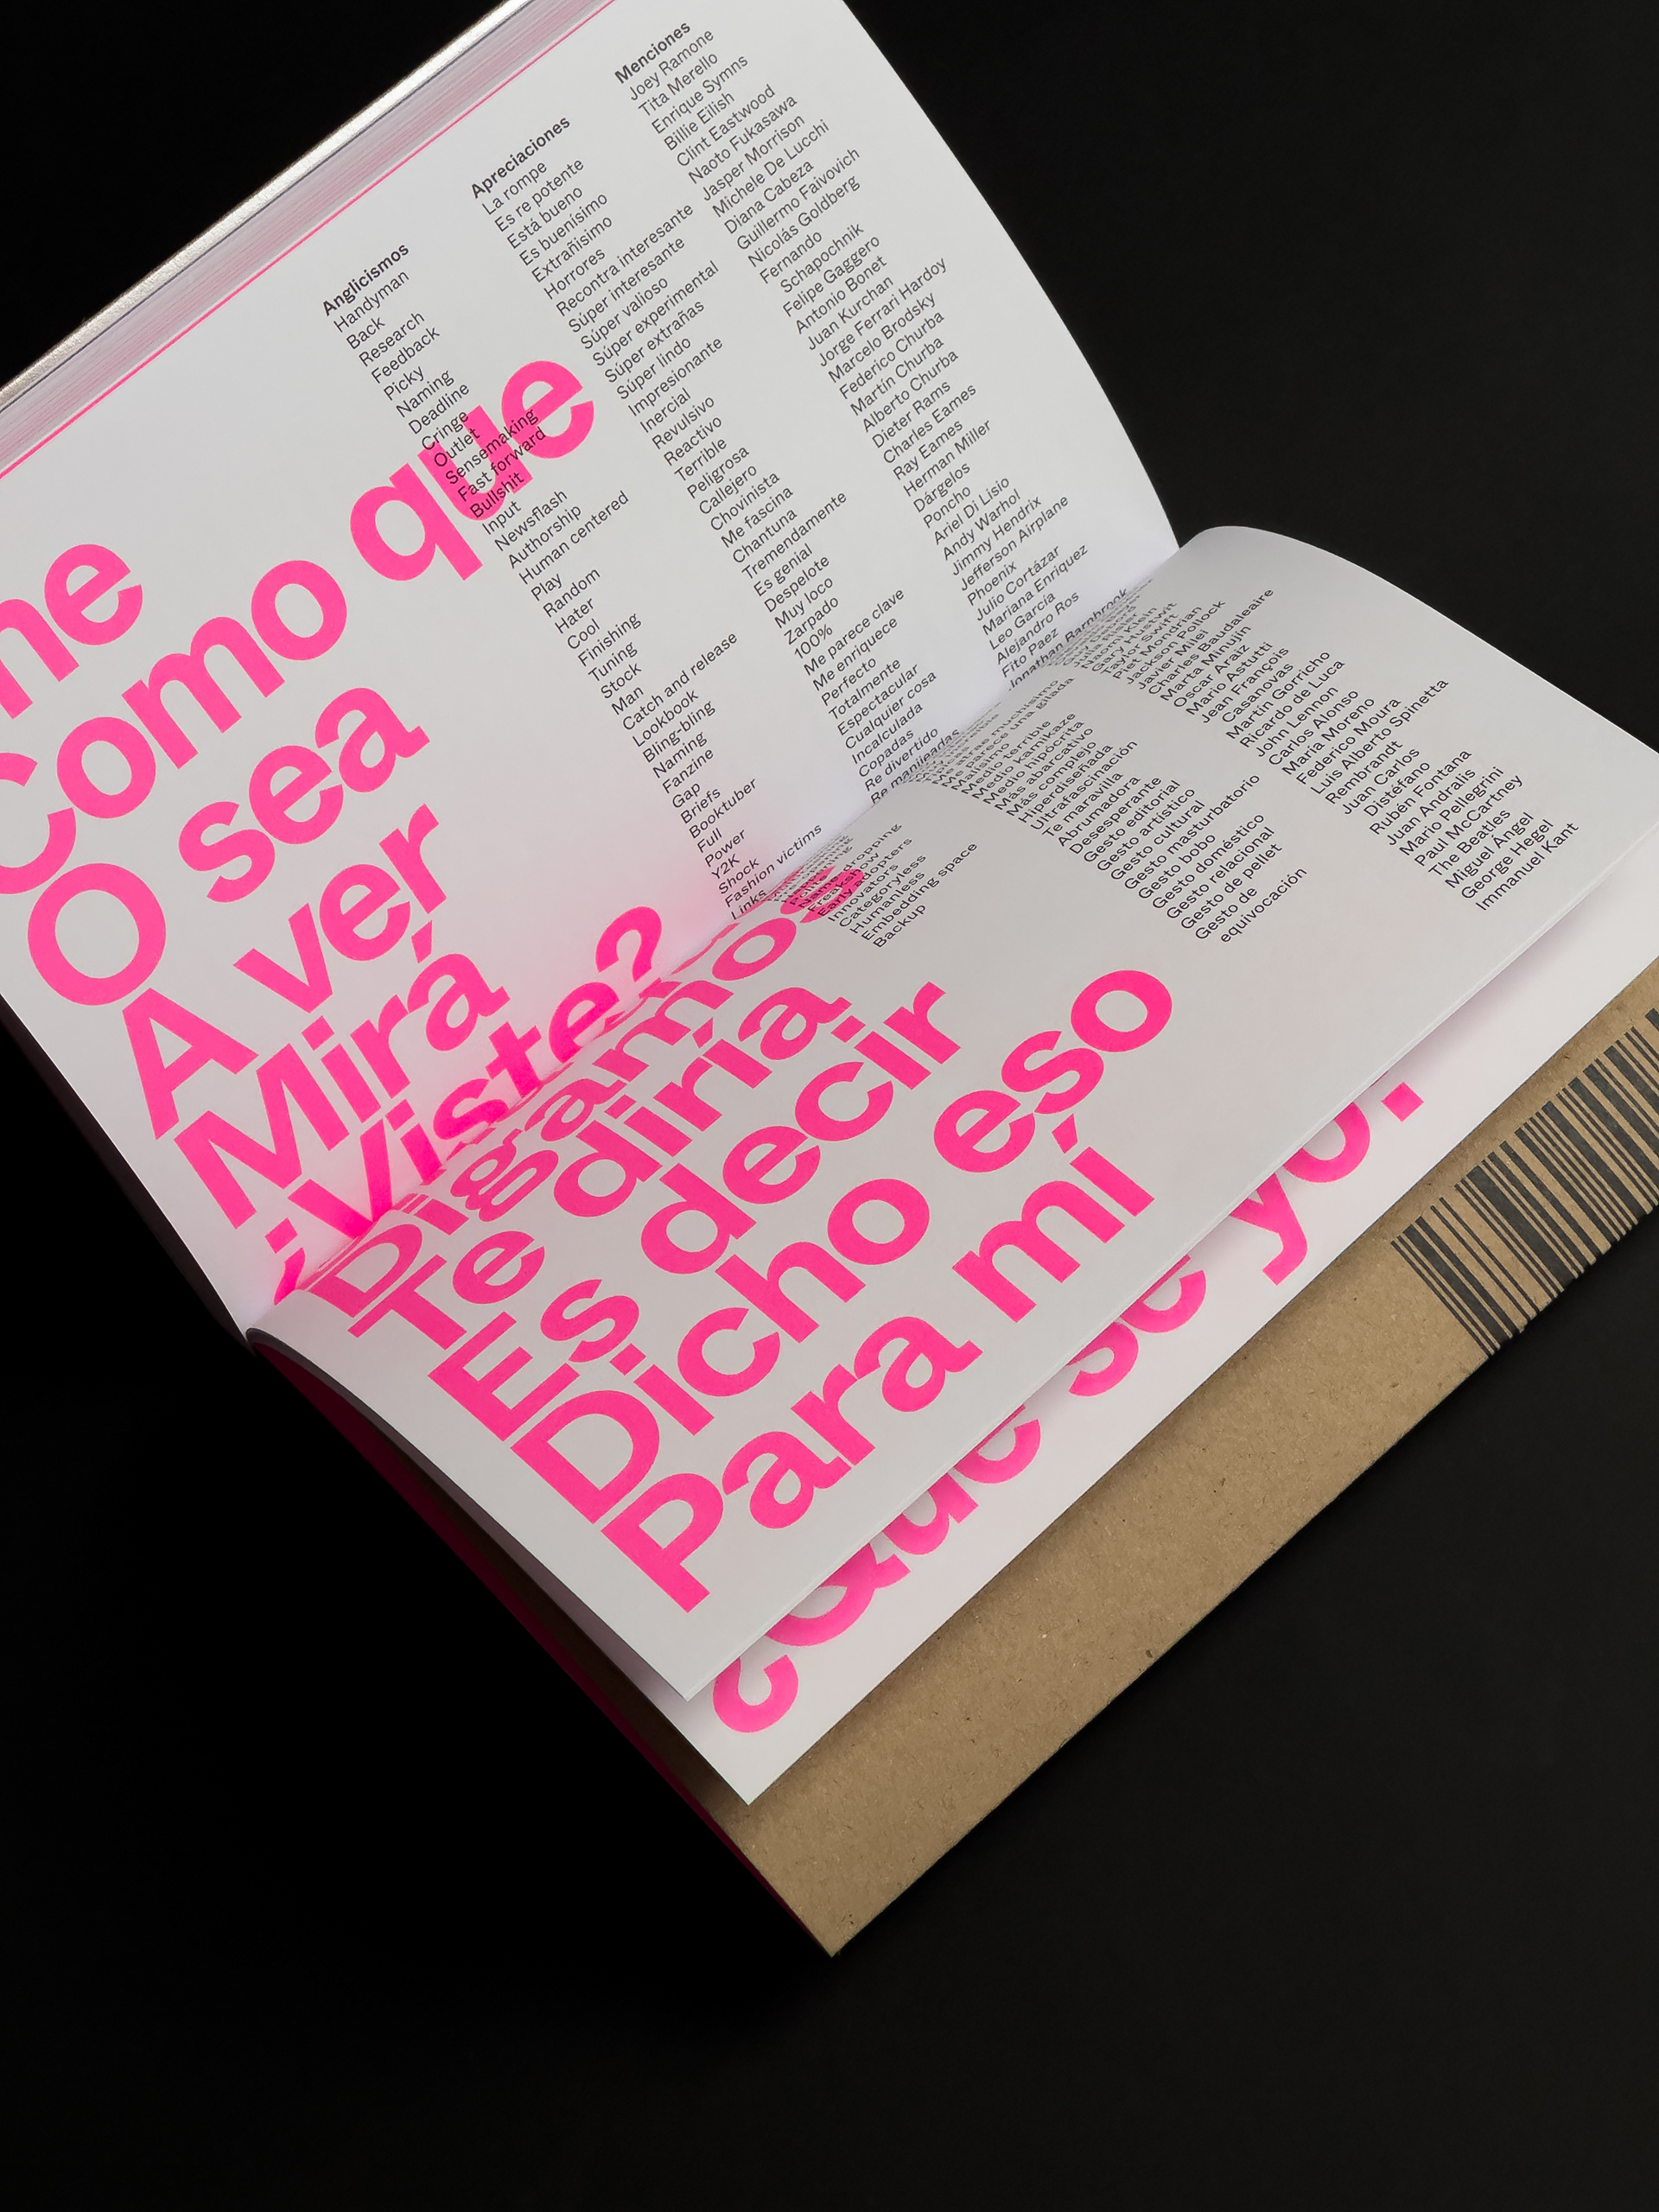 me
Como que
O sea
A ver
Mirá
¿Viste?
Digamos
Te diría
Es decir
Dicho eso
Para mí
¿Qué sé yo?
Anglicismos
Handyman
Back
Research
Feedback
Picky
Naming
Deadline
Cringe
Outlet
Sensemaking
Fast forward
Bullshit
Input
Newsflash
Authorship
Human centered
Play
Random
Hater
Cool
Finishing
Tuning
Stock
Man
Catch and release
Lookbook
Bling-bling
Naming
Fanzine
Gap
Briefs
Booktuber
Full
Power
Y2K
Shock
Fashion victims
Links
Early adopters
Innovators
Categoryless
Humanless
Embedding space
Backup
Apreciaciones
La rompe
Es re potente
Está bueno
Es buenísimo
Extrañísimo
Horrores
Recontra interesante
Súper interesante
Súper valioso
Súper experimental
Súper extrañas
Súper lindo
Impresionante
Inercial
Revulsivo
Reactivo
Terrible
Peligrosa
Callejero
Chovinista
Me fascina
Chantuna
Tremendamente
Es genial
Despelote
Muy loco
Zarpado
100%
Me parece clave
Me enriquece
Perfecto
Totalmente
Espectacular
Cualquier cosa
Incalculada
Copadas
Re divertido
Re manijeadas
Me parece una gilada
Malísimo
Medio terrible
Medio kamikaze
Medio hipócrita
Más abarcativo
Más complejo
Hiperdiseñada
Ultrafascinación
Te maravilla
Abrumadora
Desesperante
Gesto editorial
Gesto artístico
Gesto cultural
Gesto masturbatorio
Gesto bobo
Gesto doméstico
Gesto relacional
Gesto de pellet
Gesto de
equivocación
Menciones
Joey Ramone
Tita Merello
Enrique Symns
Billie Eilish
Clint Eastwood
Naoto Fukasawa
Jasper Morrison
Michele De Lucchi
Diana Cabeza
Guillermo Faivovich
Nicolás Goldberg
Fernando
Schapochnik
Felipe Gaggero
Antonio Bonet
Juan Kurchan
Jorge Ferrari Hardoy
Marcelo Brodsky
Federico Churba
Martín Churba
Alberto Churba
Dieter Rams
Charles Eames
Ray Eames
Herman Miller
Dárgelos
Poncho
Ariel Di Lisio
Andy Warhol
Jimmy Hendrix
Jefferson Airplane
Phoenix
Julio Cortázar
Mariana Enriquez
Leo García
Alejandro Ros
Fito Paez
Jonathan Barnbrook
Naomi Klein
Gary Hustwit
Taylor Swift
Piet Mondrian
Jackson Pollock
Javier Milei
Charles Baudaleaire
Marta Minujín
Oscar Araiz
Mario Astutti
Jean François
Casanovas
Martín Gorricho
Ricardo de Luca
John Lennon
Carlos Alonso
María Moreno
Federico Moura
Luis Alberto Spinetta
Rembrandt
Juan Carlos
Distéfano
Rubén Fontana
Juan Andralis
Mario Pellegrini
Paul McCartney
The Beatles
Miguel Ángel
George Hegel
Immanuel Kant